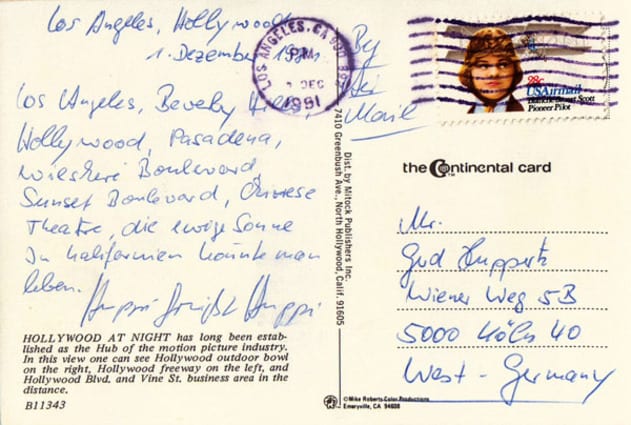 Los Angeles, Hollywood
1. Dezember
Los Angeles, Beverly Hills,
Hollywood, Pasadena,
Wilshire Boulevard,
Sunset Boulevard, Chinese
Theatre, die ewige Sonne
In Kalifornien könnte man
leben.
HOLLYWOOD AT NIGHT has long been estab-
lished as the Hub of the motion picture industry.
In this view one can see Hollywood outdoor bowl
on the right, Hollywood freeway on the left, and
Hollywood Blvd. and Vine St. business area in the
distance.
B11343
LOS ANGELES, CA 900
PM
DEC
1981
By
Air
Mail
28c
USAirmail
Blanche Stuart Scott
Pioneer Pilot
Dist. by Mitock Publishers Inc.
7410 Greenbush Ave., North Hollywood, Calif. 91605
the Continental card
TM
Mr.
Gud Huppertz
Wiener Weg 5B
5000 Köln 40
West-Germany
©Mike Roberts Color Productions
Emeryville, CA 94608